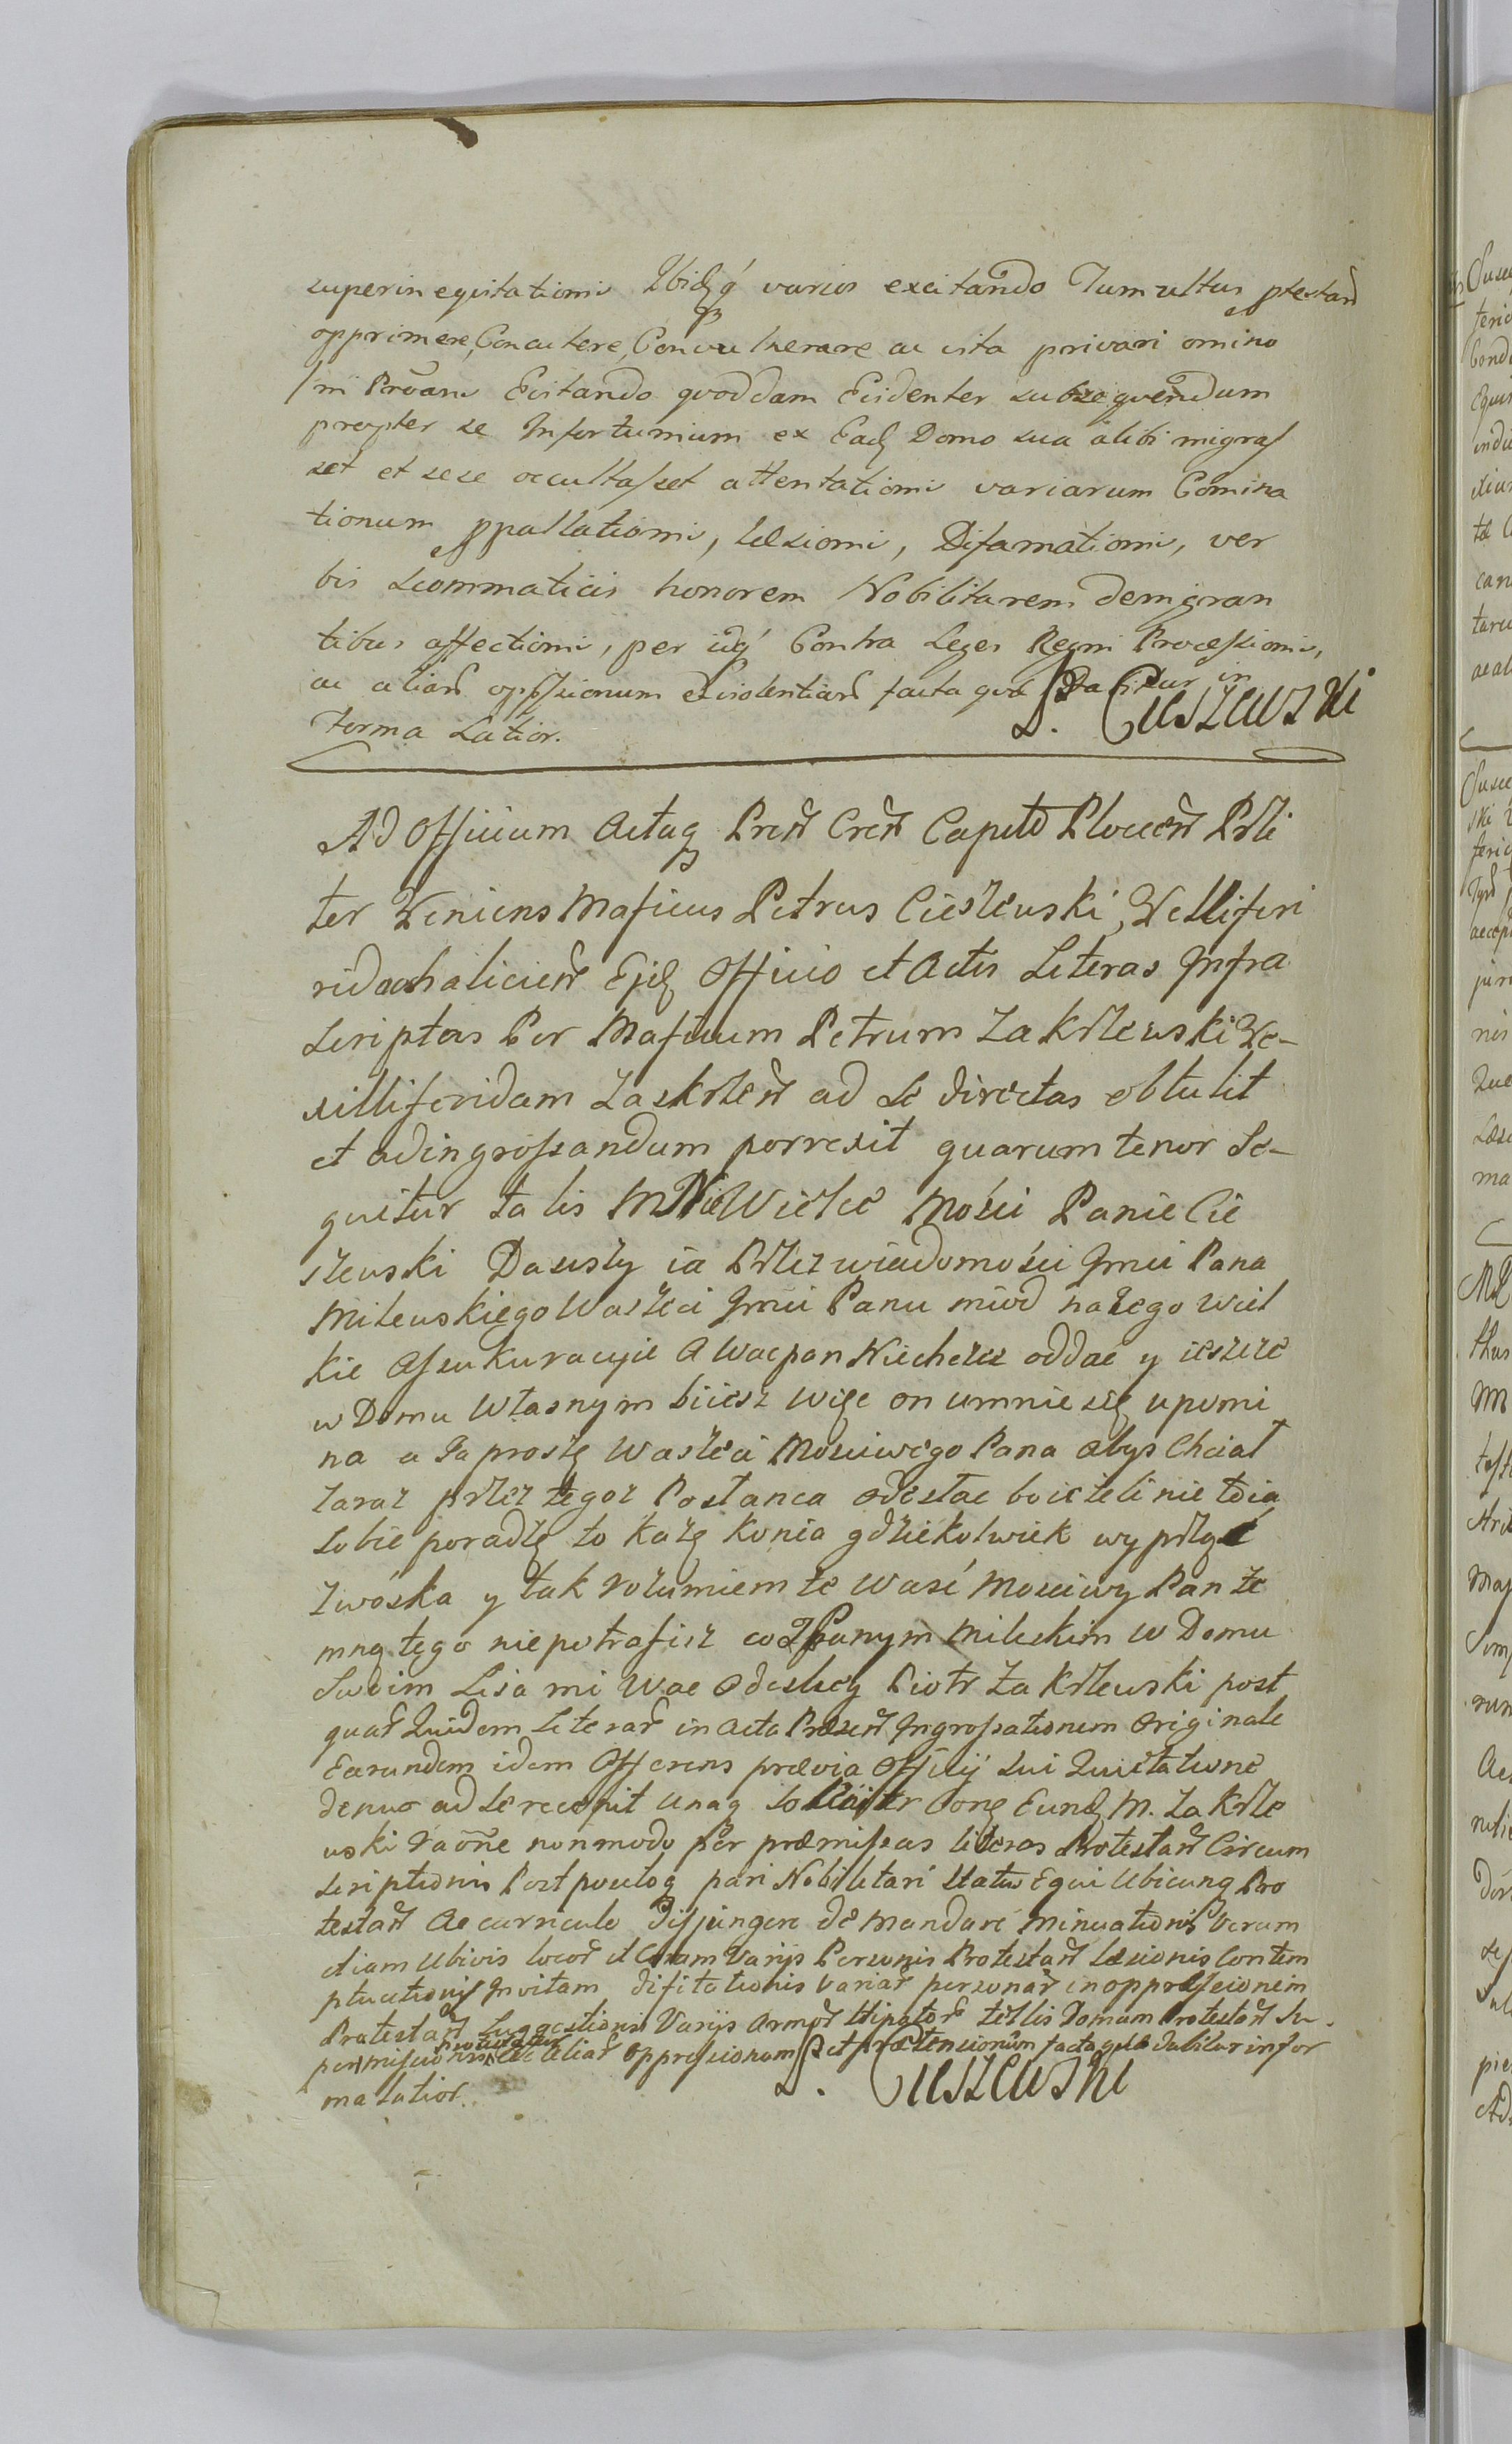 superinequitationis Ibidq́ varios excitando Tumultus ptestan̄
opprimere, Concutere, Convulnerare ac vita privari omino
Evitando quoddam Evidenter subsequendum
propter se Infortunium ex Ead Domo sua alibi migras
set et sese occultasset attentationis variarum Comina
tionum ppallationis, lesionis, Difamationis, ver
bis scommaticis honorem Nobilitarem denigran
tibus affectionis, per idq́ Contra Leges Regni Processionis,
ac aliar̄ oppssionum et violentiar̄ facta quæ Dabitur in
Forma Latior.
S. Cieszewski
Ad Officium Actaq Præn̄ Cren̄ Capitẽ Plocen̄ Pr̄li
ter Veniens Mag̃ficus Petrus Cieszewski, Vexilliferi
Ejd Officio et Actis Literas Infra
scriptas Per Magficum Petrum Zakrzewski Ve-
xilliferidam Zaskrzen̄ ad Se directas obtulit
et adingrossandum porrexit quarum tenor Se-
quitur talis Mośći Panie Cie
szewski Dawszy ia Przez wiadomości Jmći Pana
Milewskięgo Waszeci Jmći Panu miod nażego wiel
kie Assekuracyie A Wacpan Niechcesz oddać y ieszcze
w Domu Własnym biiesz więc on umnie się upomi
na a Ja proszę Waszeci Mosciwego Pana abys Chciał
zaraz przez tęgoz Posłanca odesłac bo iezeli nie to ia
sobie poradzę to każę konia gdziekolwiek wyprządz
zwoska y tak rozumiem że Waść Mosciwy Pan ze
mną tęgo niepotrafisz co z Panym Mileskim w Domu
Swoim Lisa mi Wac Odeslicz Piotr Zakrzewski post
quar̄ Quidem Literar̄ in Acta Præsen̄ Ingrossationem Originale
Earundem idem Offerens prævia Officij sui Quietatione
denuo ad Se recepit Unaq Solliciter Conq Eund M. Zakrze
wski Raōne nonmodo per præmissas literas Protestan̄ Circum
scriptionis Postpositoq pari Nobilitari Statu Equi Ubicunq Pro
testan̄ Ae curriculo Disjungere de mandare minuationis Verum
etiam Ubivis locor̄ et Coram Varijs Personis Protestan̄ læsionis Contem
ptuationis Invitam difitationis variar̄ personar̄ in oppressionem
Protestan̄ Suggestionis Varijs Armor̄ stipator̄ tellis Domum Protestan̄ Su
permissionis ac aliar̄ oppressionum et prætensionum facta quæ Dabitur infor
ma latior.
S. Cieszewski